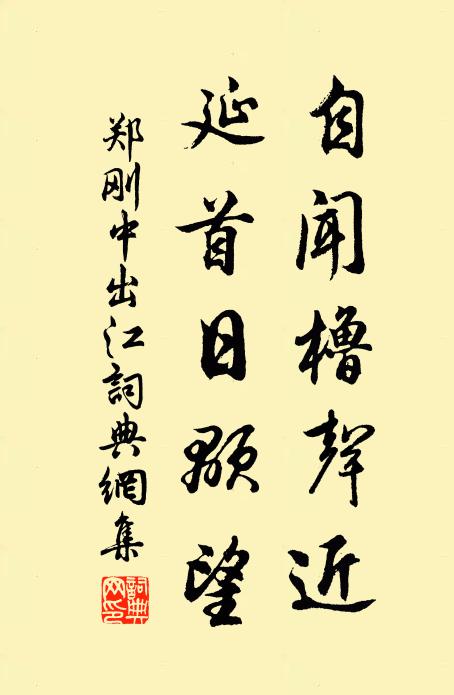 自闻橹聲近
延首日颙望
郑刚中出江詞典網集
詞典网印